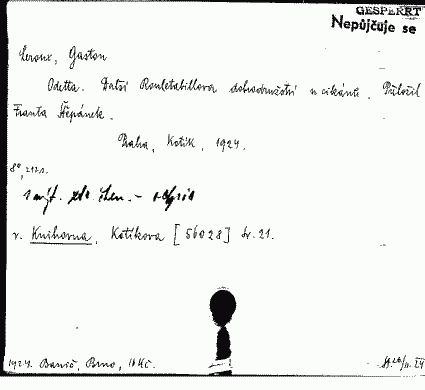 GESPERRT
Nepůjčuje se
Leroux, Gaston
Odetta. Další Rouletabillova dobrodružství u cikánů. Přeložil
Franta Štěpánek.
Praha, Kotík, 1924.
8°, 212 s.
v. Knihovna, Kotíkova [56028] Sv. 21.
1924. Banič, Brno, 16 Kč.